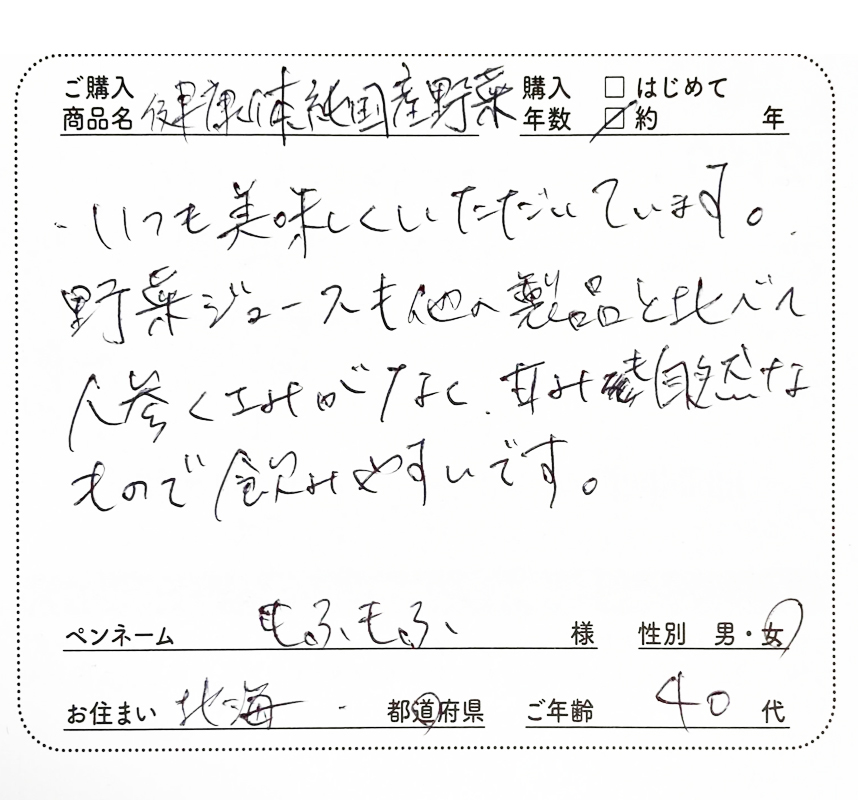 ご購入
商品名 健康体純国産野菜
購入 □ はじめて
年数 ☑ 約 年
・いつも美味しくいただいています。
野菜ジュースも他の製品と比べて
人参くさみがなく、甘みも自然な
もので飲みやすいです。
ペンネーム もふもふ 様
性別 男・女
お住まい 北海 都道府県
ご年齢 40 代